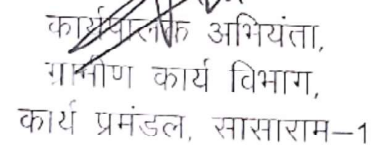 कार्यपालक अभियंता,
ग्रामीण कार्य विभाग,
कार्य प्रमंडल, सासाराम-1